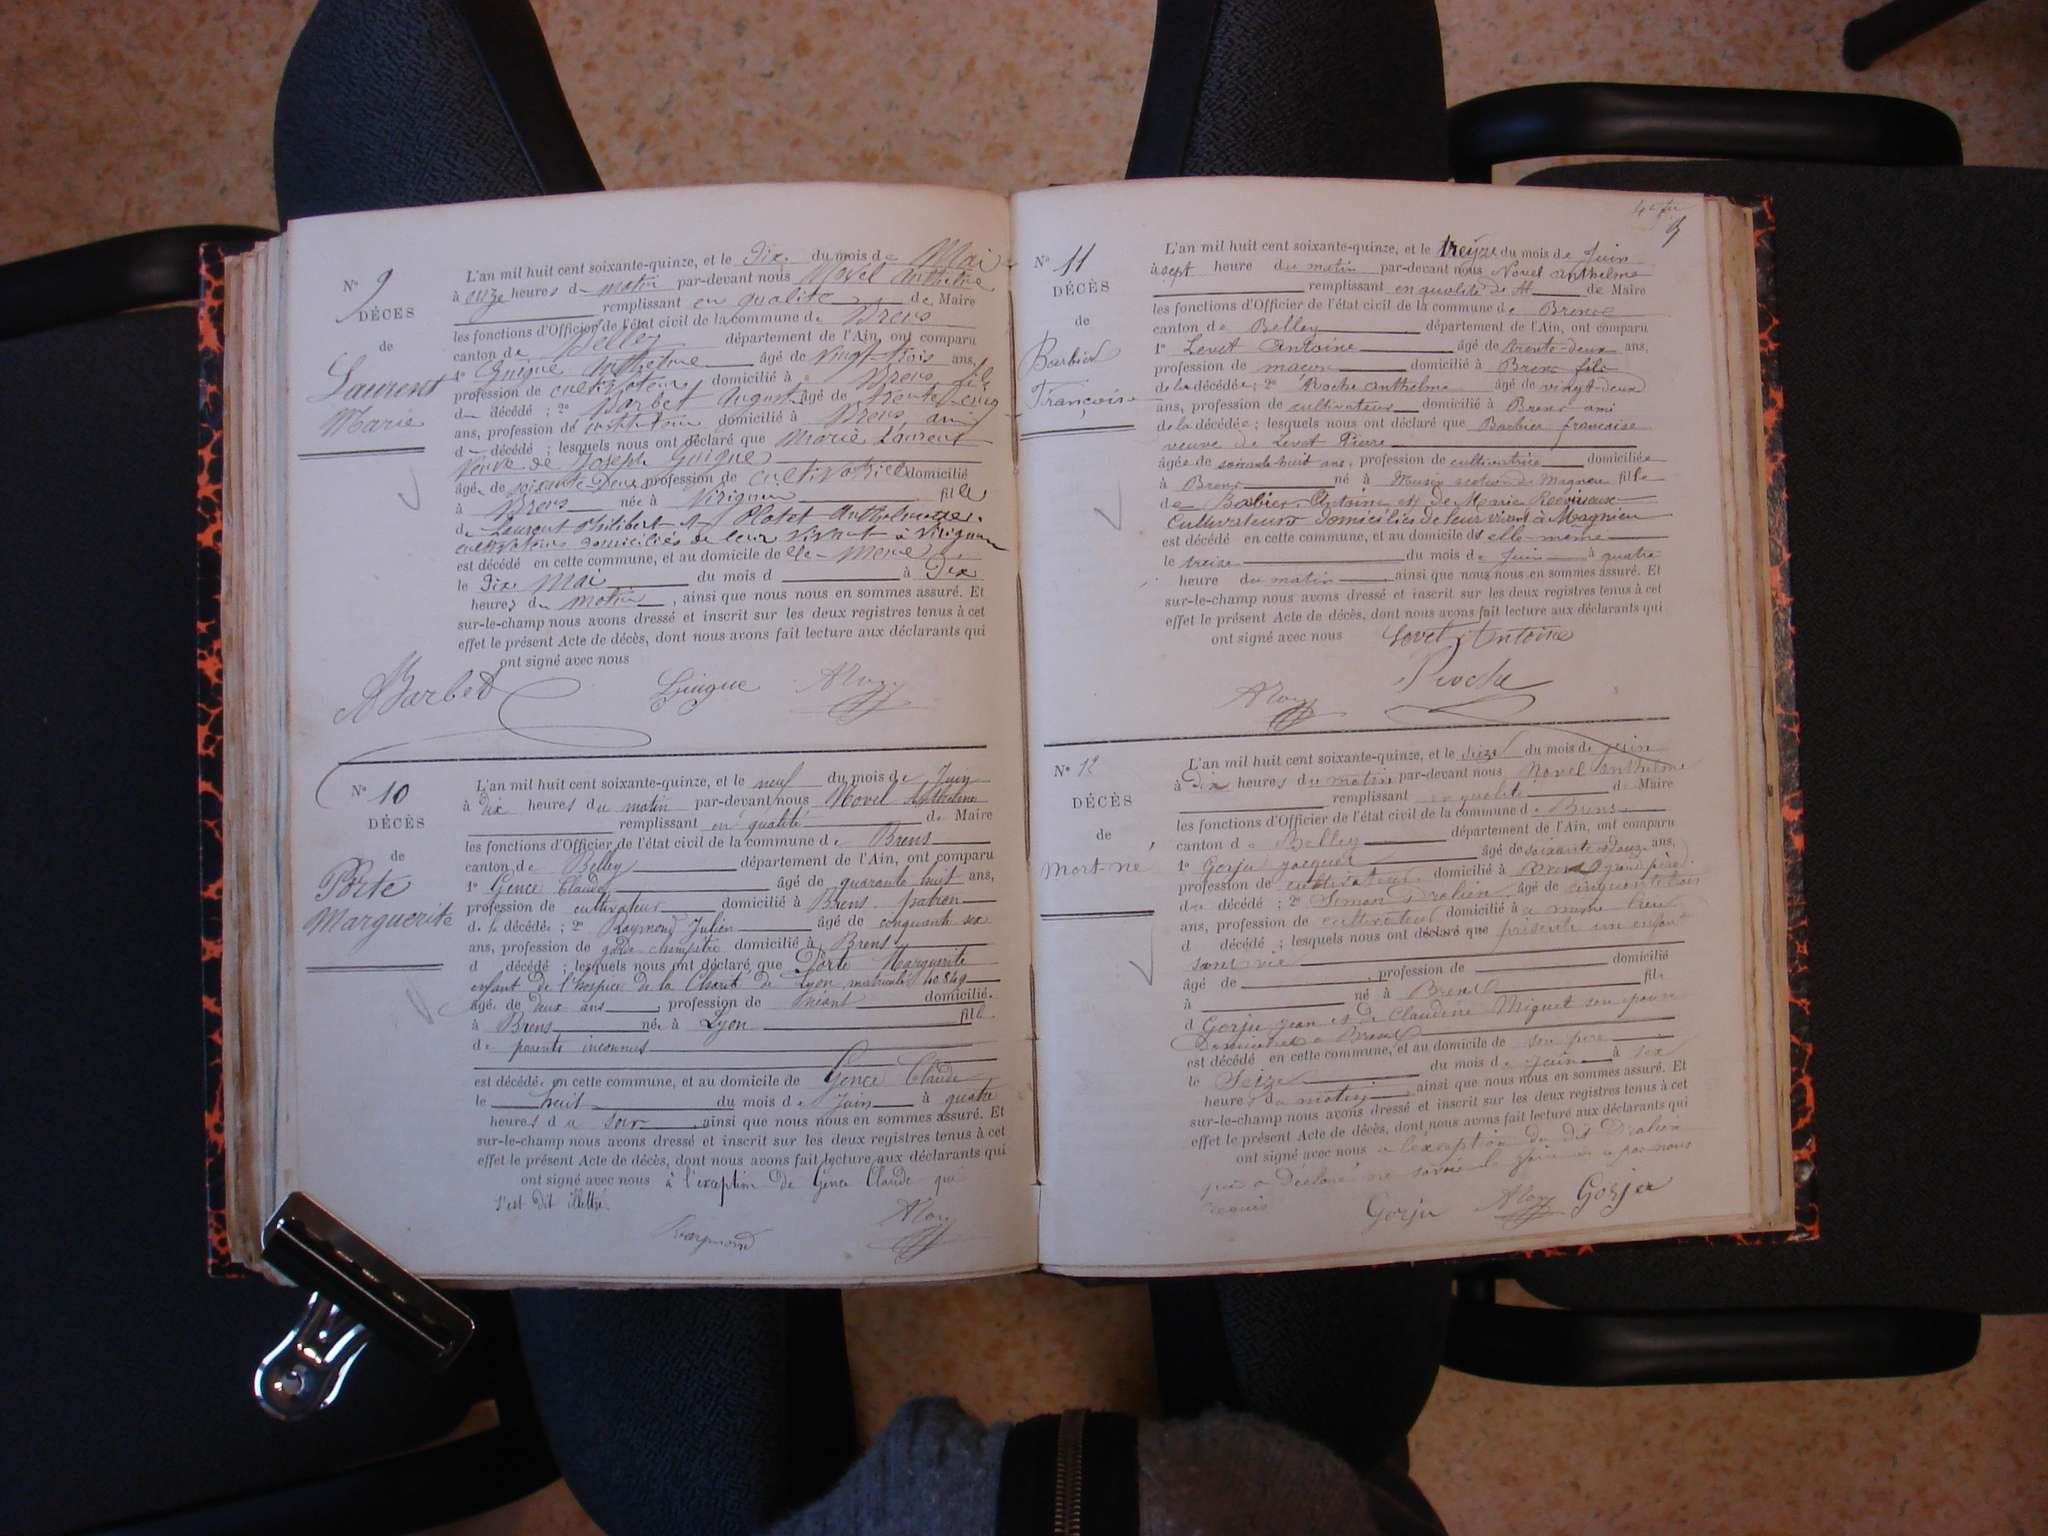 N° 9
DÉCES
de
Laurent
Marie
L'an mil huit cent soixante-quinze, et le Dix du mois de Mai
à onze heures du matin par-devant nous Novel Anthelme
remplissant en qualité de Maire
les fonctions d'Officier de l'état civil de la commune de Brens
canton de Belley département de l'Ain, ont comparu
1° Guigue Anthelme âgé de Vingt-trois ans,
profession de cultivateur domicilié à Brens fils
du décédé ; 2° Barbet August âgé de trente cinq
ans, profession de instituteur domicilié à Brens ami
d décédé ; lesquels nous ont déclaré que Marie Laurent
Veuve de Joseph Guigue
âgée de soixante-Deux profession de cultivatrice domicilié
à Brens née à Virignin fille
de Laurent Philibert et Plotet
cultivateurs domiciliés de leur vivant à Virignin
est décédé en cette commune, et au domicile de elle-meme
le Dix Mai du mois d à Dix
heures du matin, ainsi que nous nous en sommes assuré. Et
sur-le-champ nous avons dressé et inscrit sur les deux registres tenus à cet
effet le présent Acte de décès, dont nous avons fait lecture aux déclarants qui
ont signé avec nous
ABarbet Guigue ANov
N° 10
DÉCÈS
de
Porte
Marguerite
L'an mil huit cent soixante-quinze, et le neuf du mois de Juin
à Dix heures du matin par-devant nous Novel Anthelme
remplissant en qualité de Maire
les fonctions d'Officier de l'état civil de la commune de Brens
canton de Belley département de l'Ain, ont comparu
1° Gence Claude âgé de quarante huit ans,
profession de cultivateur domicilié à Brens patron
de la décédée ; 2° Raymond Julien âgé de cinquante six
ans, profession de garde champêtre domicilié à Brens
d décédé ; lesquels nous ont déclaré que Porte Marguerite
enfant de l'hospice de la Charité de Lyon matricule 40849
âgé de deux ans, profession de néant domicilié.
à Brens née à Lyon fille
de parents inconnus
est décédé en cette commune, et au domicile de Gence Claude
le huit du mois de Juin à quatre
heures du soir, ainsi que nous nous en sommes assuré. Et
sur-le-champ nous avons dressé et inscrit sur les deux registres tenus à cet
effet le présent Acte de décès, dont nous avons fait lecture aux déclarants qui
ont signé avec nous à l'exception de Gence Claude qui
s'est dit illettré.
Raymond ANov
N° 11
DÉCÈS
de
Barbier
Françoise
L'an mil huit cent soixante-quinze, et le treize du mois de Juin
à sept heure du matin par-devant nous Novel anthelme
remplissant en qualité de M de Maire
les fonctions d'Officier de l'état civil de la commune de Brens
canton de Belley département de l'Ain, ont comparu
1° Levet Antoine âgé de trente-deux ans,
profession de maçon domicilié à Brens fils
de la décédée ; 2° Roche Anthelme âgé de vingt-deux
ans, profession de cultivateur domicilié à Brens ami
de la décédée ; lesquels nous ont déclaré que Barbier francoise
veuve de Levet Pierre
âgée de soixante huit ans, profession de cultivatrice domiciliée
à Brens né à Musin section de Magnieu fille
de Barbier Antoine et de Marie
Cultivateurs domiciliés de leur vivant à Magnieu
est décédé en cette commune, et au domicile de elle-même
le treize du mois de Juin à quatre
heure du matin, ainsi que nous nous en sommes assuré. Et
sur-le-champ nous avons dressé et inscrit sur les deux registres tenus à cet
effet le présent Acte de décès, dont nous avons fait lecture aux déclarants qui
ont signé avec nous Levet Antoine
ANov Roche
N° 12
DÉCÈS
de
Mort-né
L'an mil huit cent soixante-quinze, et le seize du mois de juin
à Dix heures du matin par-devant nous Novel anthelme
remplissant en qualité de Maire
les fonctions d'Officier de l'état civil de la commune de Brens
canton de Belley département de l'Ain, ont comparu
1° Gorju jacques âgé de soixante et douze ans,
profession de cultivateur domicilié à Brens grand père
du décédé ; 2° Simon Dralin âgé de cinquante trois
ans, profession de cultivateur domicilié à même lieu
d décédé ; lesquels nous ont déclaré que présente un enfant
sans vie
âgé de, profession de domicilié
à né à Brens fils
d Gorju jean et de Claudine Miguet son épouse
Domiciliés à Brens
est décédé en cette commune, et au domicile de son père
le Seize du mois de Juin à six
heures du matin, ainsi que nous nous en sommes assuré. Et
sur-le-champ nous avons dressé et inscrit sur les deux registres tenus à cet
effet le présent Acte de décès, dont nous avons fait lecture aux déclarants qui
ont signé avec nous a l'exception du dit Dralin
qui a Déclaré ne savoir le faire de ce par nous
requis
Gorju ANov Gorju